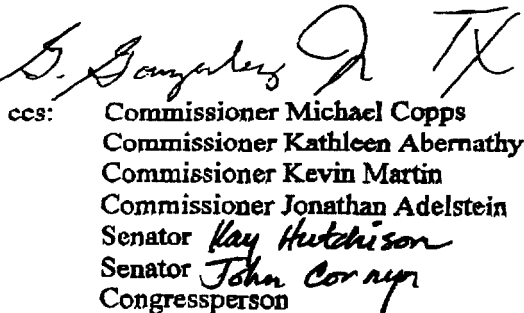 G. Gonzalez Jr TX
ccs: Commissioner Michael Copps
Commissioner Kathleen Abernathy
Commissioner Kevin Martin
Commissioner Jonathan Adelstein
Senator Kay Hutchison
Senator John Cornyn
Congressperson